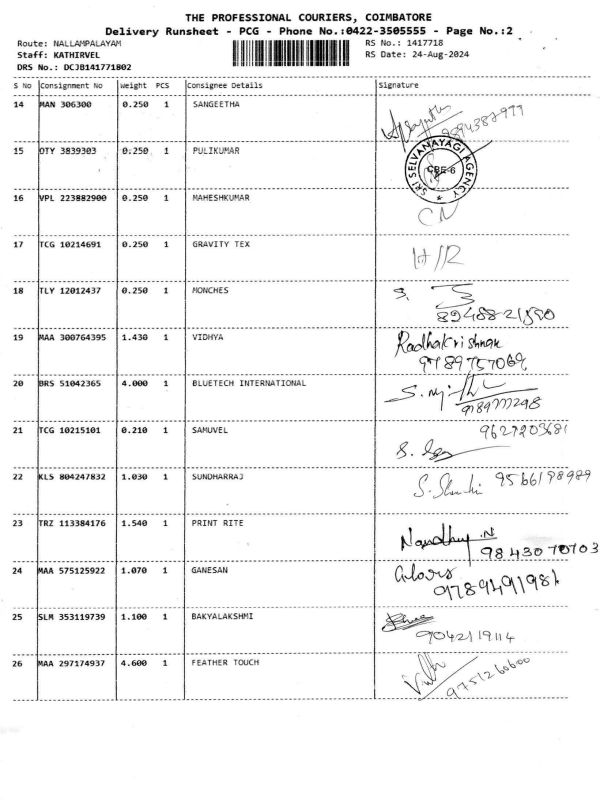 THE PROFESSIONAL COURIERS, COIMBATORE
Delivery Runsheet - PCG - Phone No.:0422-3505555 - Page No.:2
Route: NALLAMPALAYAM RS No.: 1417718
Staff: KATHIRVEL RS Date: 24-Aug-2024
DRS No.: DCJB141771802
S No Consignment No Weight PCS Consignee Details Signature
14 MAN 306300 0.250 1 SANGEETHA
15 OTY 3839303 0.250 1 PULIKUMAR SRI SELVANAYAGI AGENCY CBE-6
16 VPL 223882900 0.250 1 MAHESHKUMAR
17 TCG 10214691 0.250 1 GRAVITY TEX
18 TLY 12012437 0.250 1 MONCHES
19 MAA 300764395 1.430 1 VIDHYA Radhakrishnan
9789757069
20 BRS 51042365 4.000 1 BLUETECH INTERNATIONAL
21 TCG 10215101 0.210 1 SAMUVEL 9627203681
22 KLS 804247832 1.030 1 SUNDHARRAJ 9566198989
23 TRZ 113384176 1.540 1 PRINT RITE
9843070703
24 MAA 575125922 1.070 1 GANESAN
9789491981
25 SLM 353119739 1.100 1 BAKYALAKSHMI
9042119114
26 MAA 297174937 4.600 1 FEATHER TOUCH
9751260600